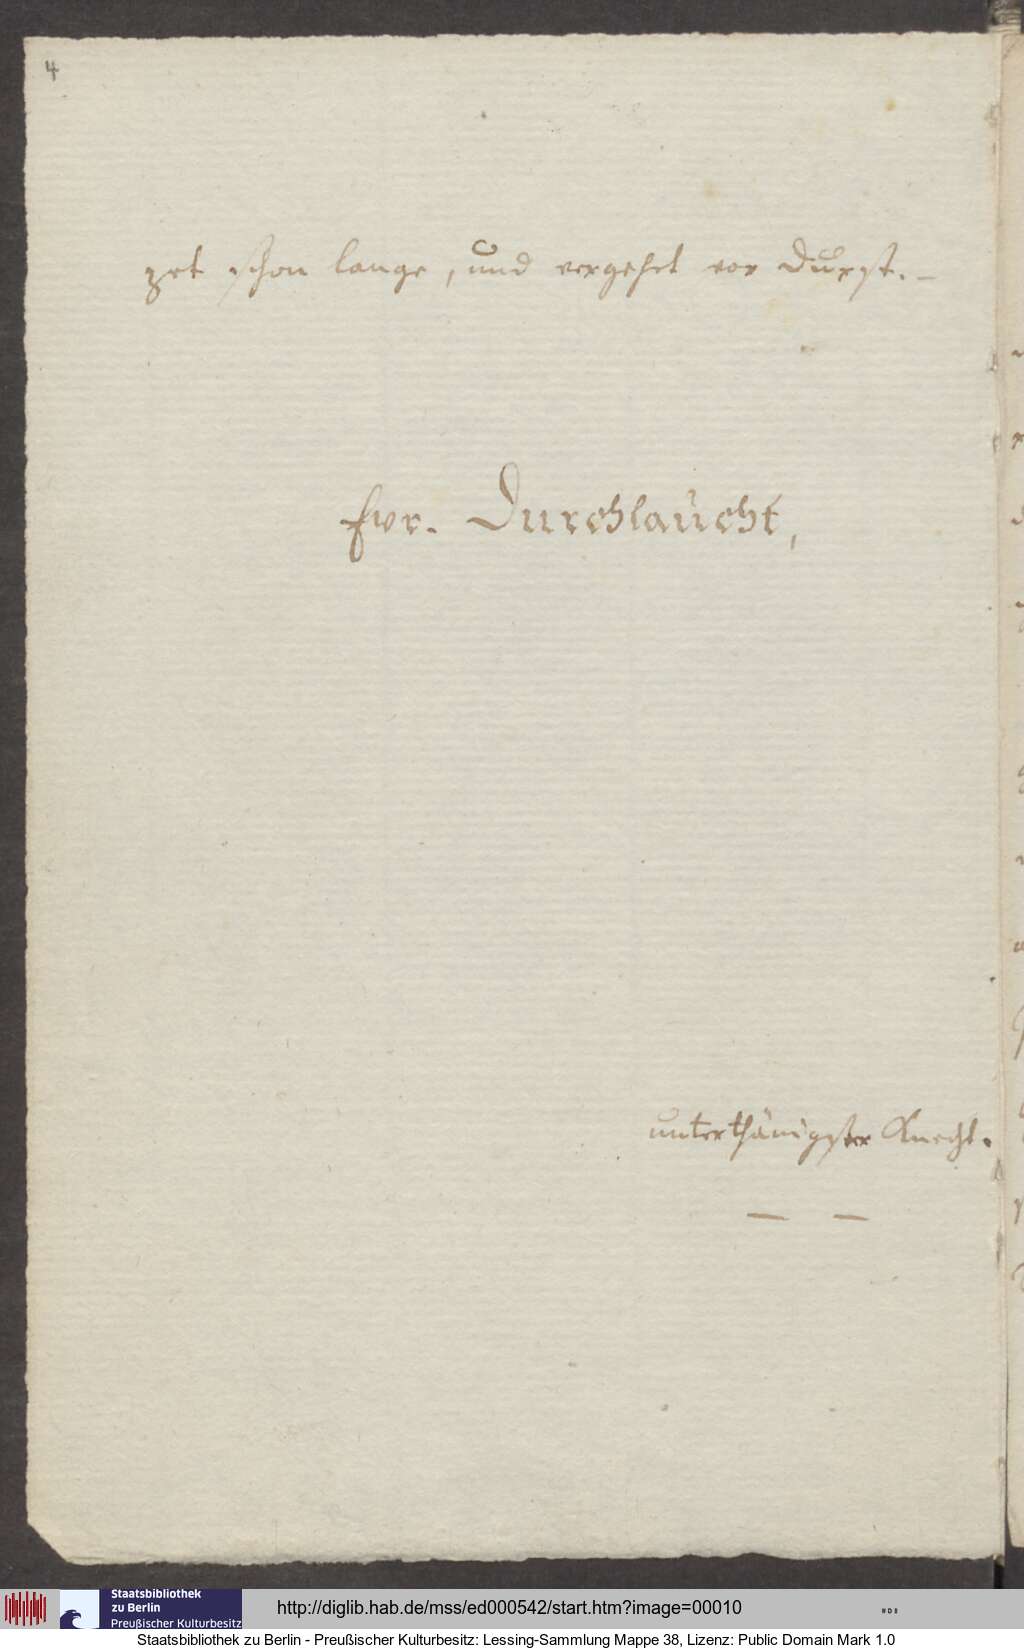 4
zet schon lange, und vergehet vor Durst. –
Ewr. Durchlaucht,
unterthänigster Knecht.
— —
Staatsbibliothek
zu Berlin
Preußischer Kulturbesitz
http://diglib.hab.de/mss/ed000542/start.htm?image=00010
Staatsbibliothek zu Berlin - Preußischer Kulturbesitz: Lessing-Sammlung Mappe 38, Lizenz: Public Domain Mark 1.0